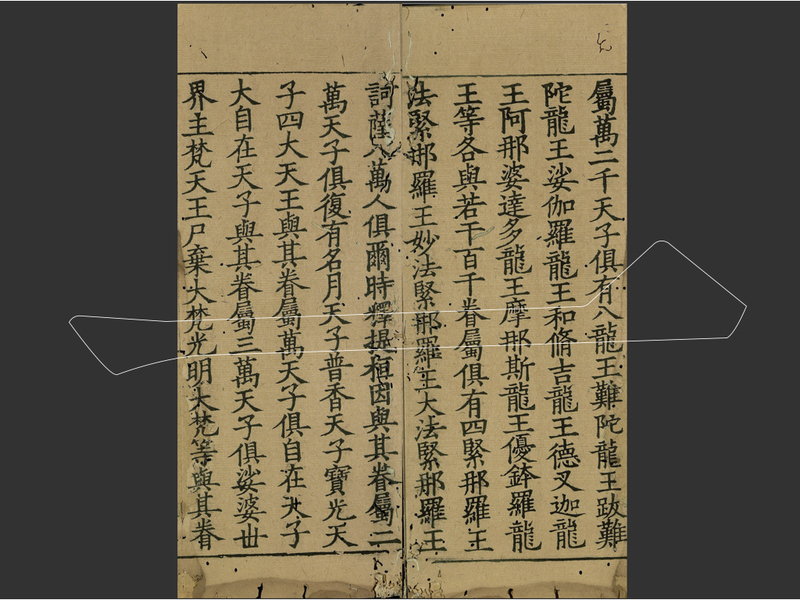 屬萬二千天子俱有八龍王難陀龍王跋難
陀龍王娑伽羅龍王和脩吉龍王德叉迦龍
王阿那婆達多龍王摩那斯龍王優鉢羅龍
王等各與若干百千眷屬俱有四緊那羅王
法緊那羅王妙法緊那羅王大法緊那羅王
訶薩八萬人俱爾時釋提桓因與其眷屬二
萬天子俱復有名月天子普香天子寶光天
子四大天王與其眷屬萬天子俱自在天子
大自在天子與其眷屬三萬天子俱娑婆世
界主梵天王尸棄大梵光明大梵等與其眷